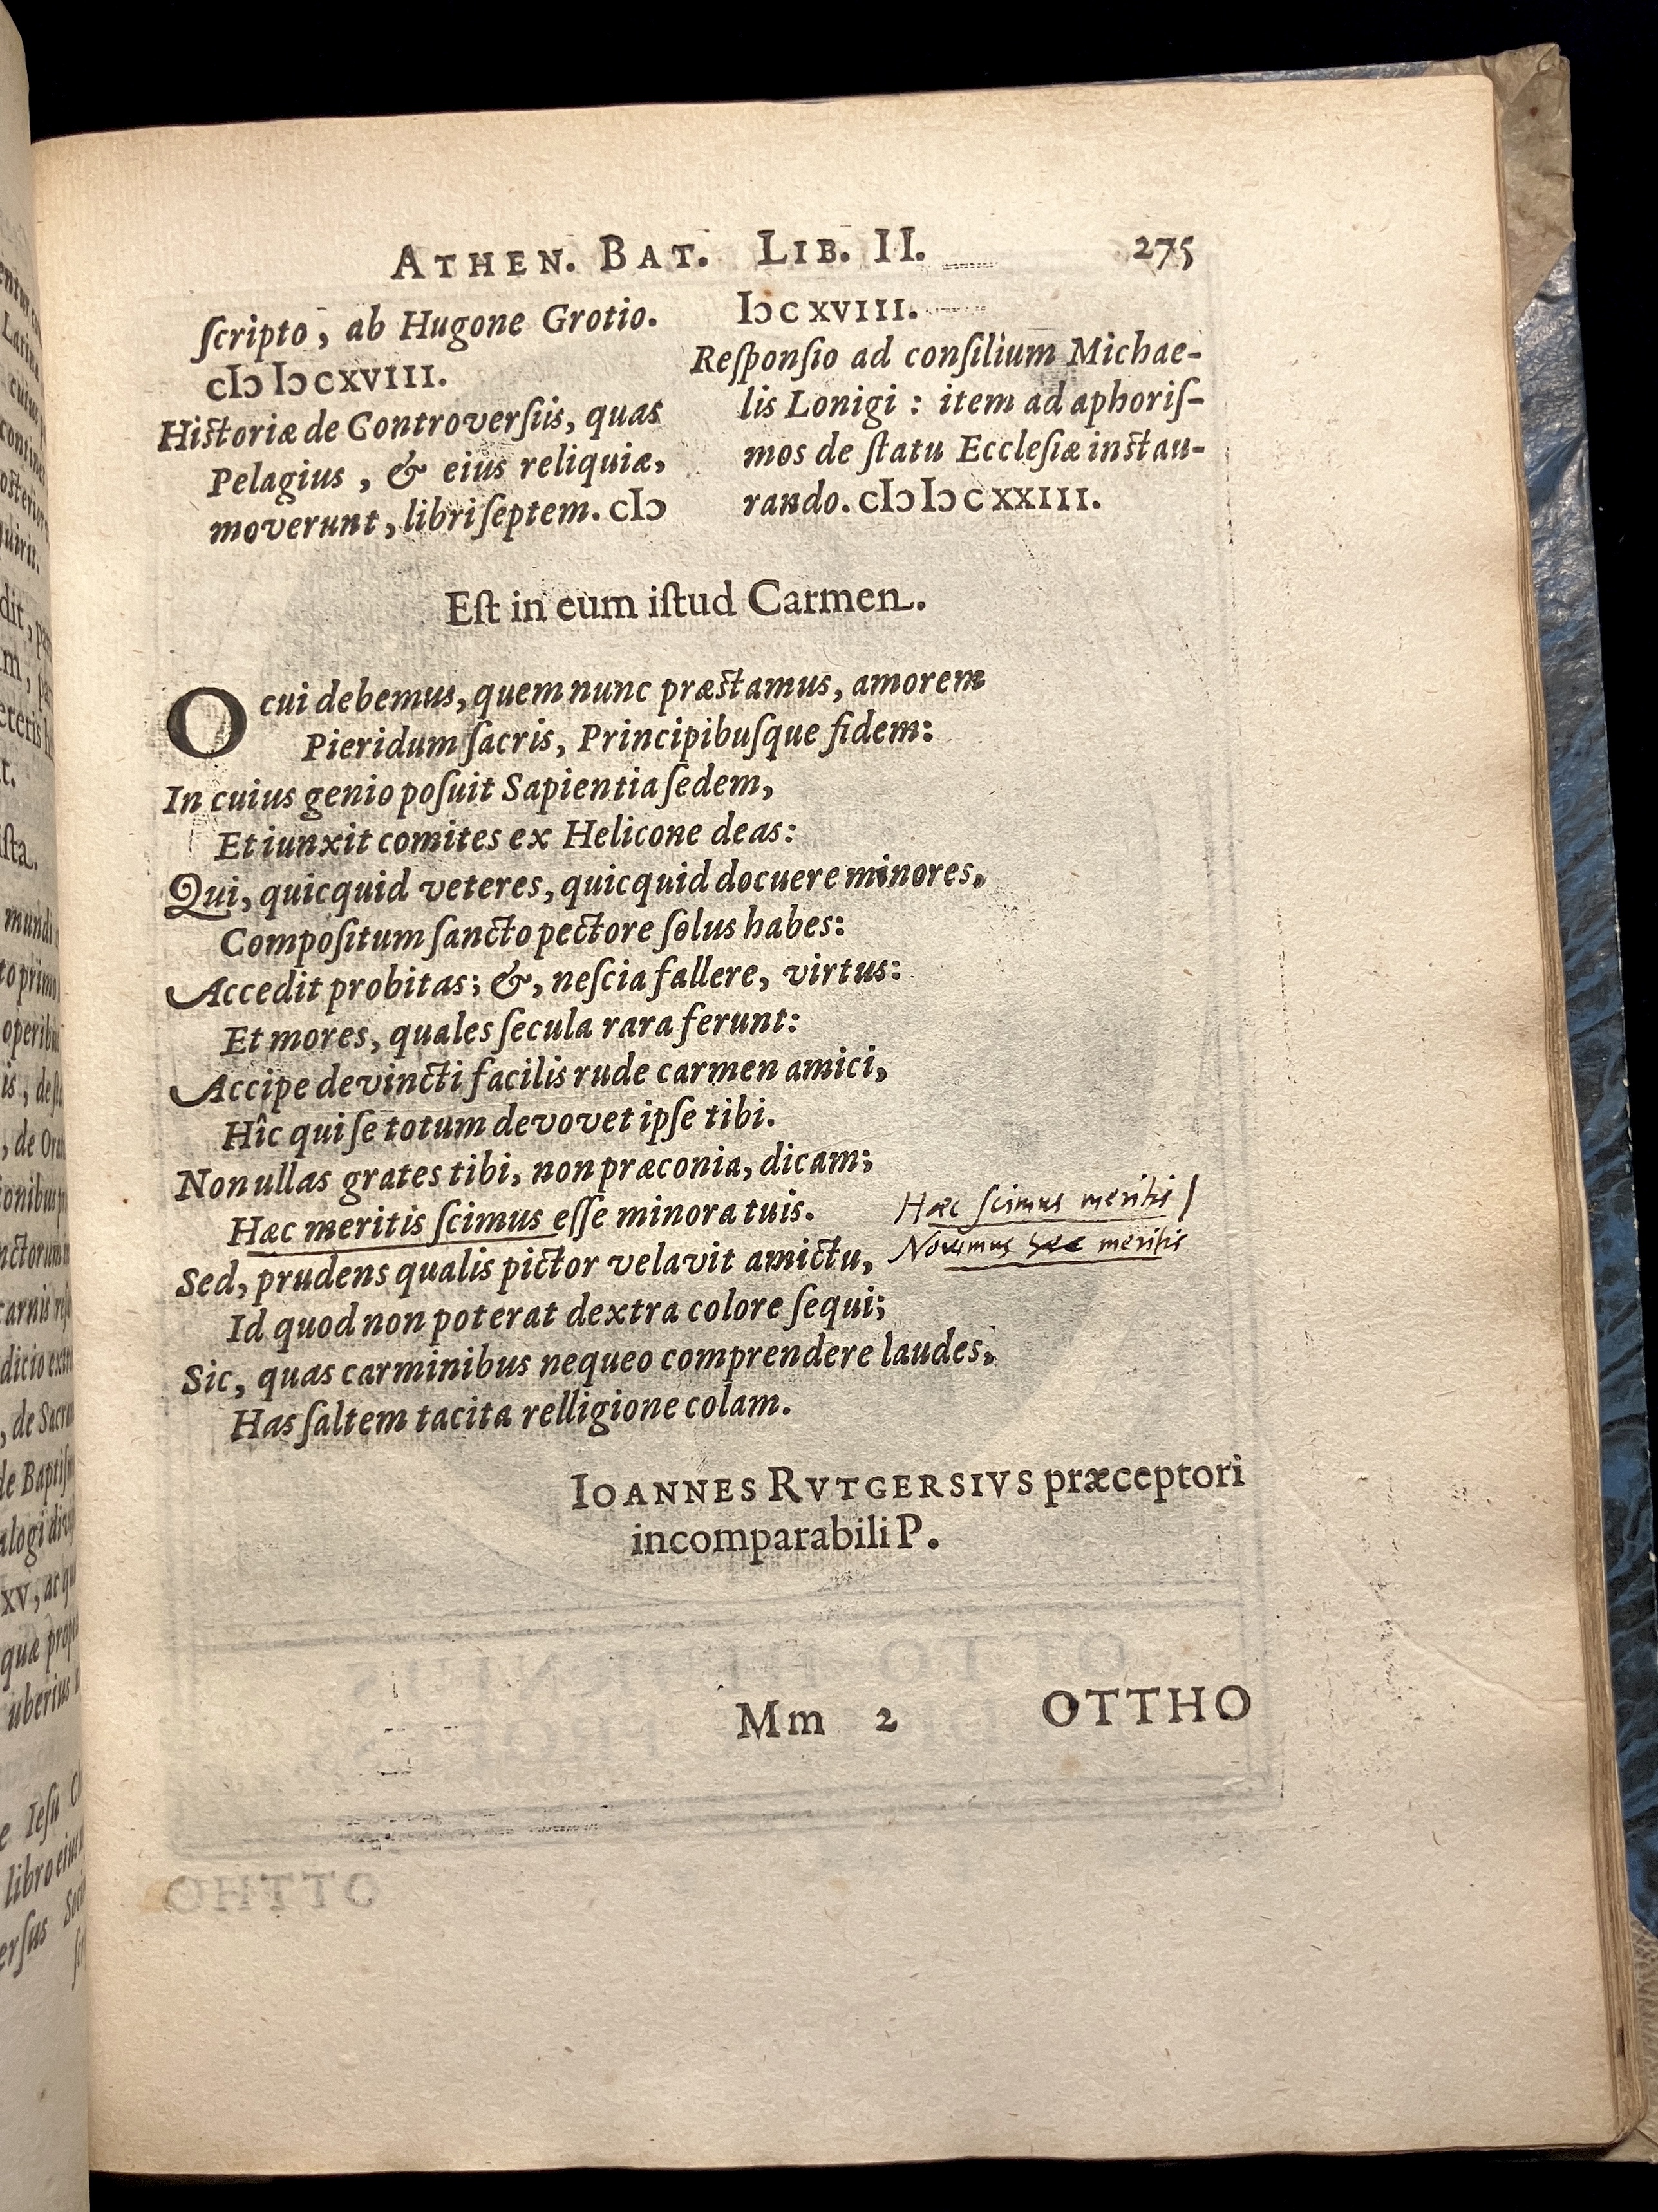 ATHEN. BAT. LIB. II. 275
ſcripto, ab Hugone Grotio.
cIↄ Iↄ c XVIII.
Hiſtoriæ de Controverſiis, quas
Pelagius, & eius reliquiæ,
moverunt, libri ſeptem. cIↄ
Iↄ c XVIII.
Reſponſio ad conſilium Michae-
lis Lonigi : item ad aphoriſ-
mos de ſtatu Eccleſiæ inſtau-
rando. cIↄ Iↄ c XXIII.
Eſt in eum iſtud Carmen.
O cui debemus, quem nunc præſtamus, amorem
Pieridum ſacris, Principibuſque fidem:
In cuius genio poſuit Sapientia ſedem,
Et iunxit comites ex Helicone deas:
Qui, quicquid veteres, quicquid docuere minores,
Compoſitum ſancto pectore ſolus habes:
Accedit probitas; &, neſcia fallere, virtus:
Et mores, quales ſecula rara ferunt:
Accipe devincti facilis rude carmen amici,
Hîc qui ſe totum devovet ipſe tibi.
Non ullas grates tibi, non præconia, dicam;
Hæc meritis ſcimus eſſe minora tuis.
Hæc ſcimus meritis /
Novimus hæc meritis
Sed, prudens qualis pictor velavit amictu,
Id quod non poterat dextra colore ſequi;
Sic, quas carminibus nequeo comprendere laudes,
Has ſaltem tacita relligione colam.
IOANNES RVTGERSIVS præceptori
incomparabili P.
Mm 2 OTTHO